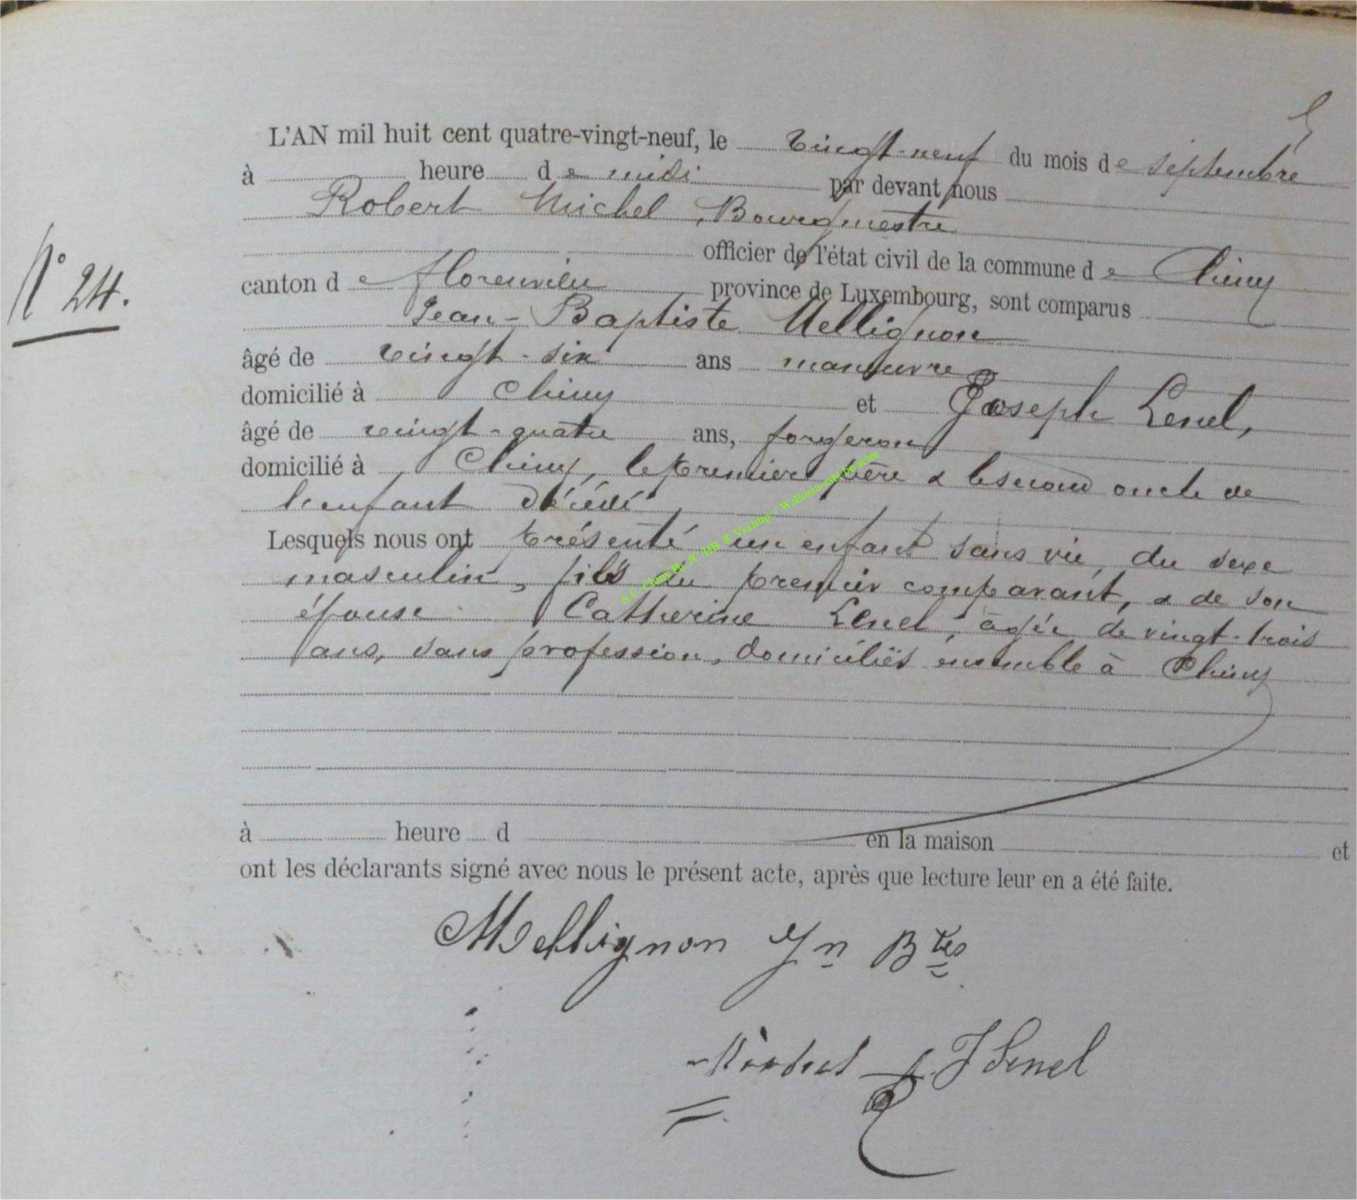 L'AN mil huit cent quatre-vingt-neuf, le vingt-neuf du mois de septembre
à heure de midi par devant nous
Robert Michel, Bourgmestre
officier de l'état civil de la commune de Chiny
N° 24.
canton de florenville province de Luxembourg, sont comparus
Jean-Baptiste Mellignon
âgé de vingt-six ans manœuvre
domicilié à Chiny et Joseph Lenel,
âgé de vingt-quatre ans, forgeron
domicilié à Chiny, le premier père & le second oncle de
l'enfant décédé
Lesquels nous ont présenté un enfant sans vie, du sexe
masculin, fils du premier comparant, & de son
épouse Catherine Lenel, âgée de vingt-trois
ans, sans profession, domiciliés ensemble à Chiny
à heure d en la maison et
ont les déclarants signé avec nous le présent acte, après que lecture leur en a été faite.
Mellignon Jn Btes
Michel J Lenel